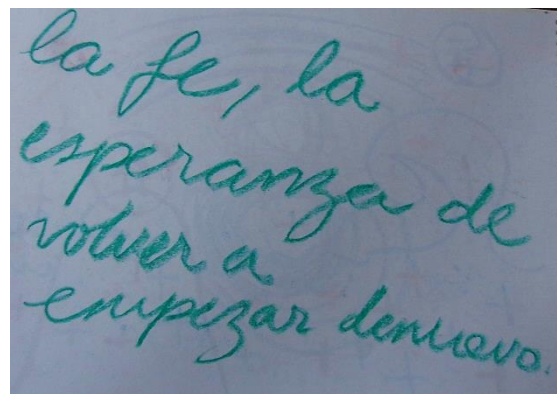 la fe, la
esperanza de
volver a
empezar denuevo.